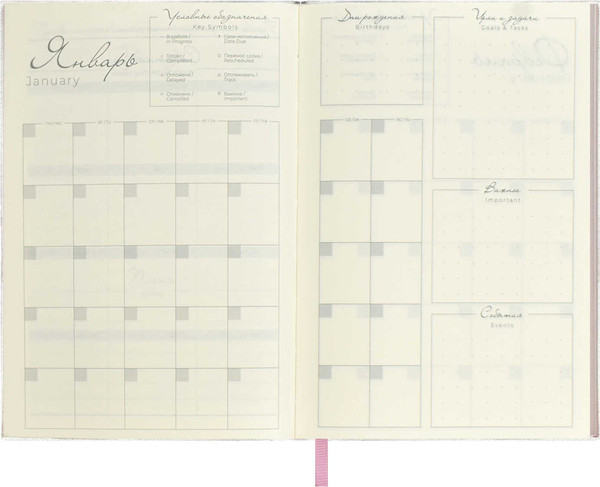 Январь
January
Условные обозначения
Key Symbols
В работе /
In Progress
Срок исполнения /
Date Due
Готово /
Completed
Перенос срока /
Rescheduled
Отложено /
Delayed
Отслеживать /
Track
Отменено /
Cancelled
Важное /
Important
ПН / Mo
ВТ / Tu
СР / We
ЧТ / Th
ПТ / Fr
Дни рождения
Birthdays
СБ / Sa
ВС / Su
Цели и задачи
Goals & Tasks
Важное
Important
События
Events